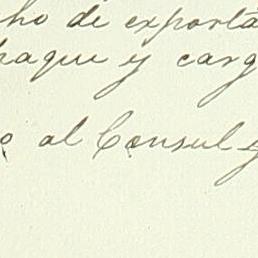 ho de exporta
paque y carg
o al Consul y